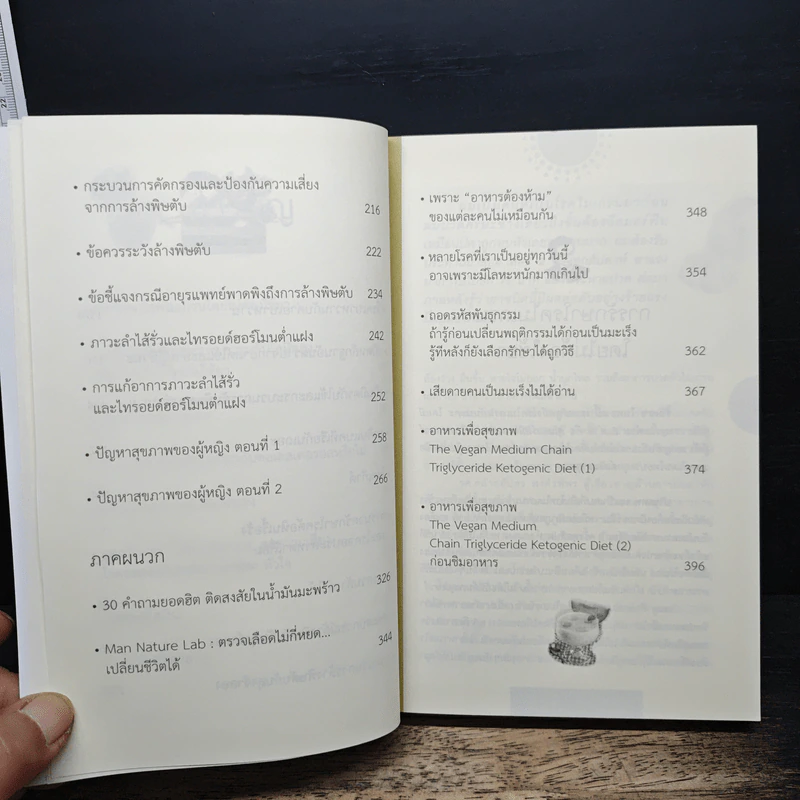 • กระบวนการคัดกรองและป้องกันความเสี่ยง
จากการล้างพิษตับ 216
• ข้อควรระวังล้างพิษตับ 222
• ข้อชี้แจงกรณีอายุรแพทย์พาดพิงถึงการล้างพิษตับ 234
• ภาวะลำไส้รั่วและไทรอยด์ฮอร์โมนต่ำแฝง 242
• การแก้อาการภาวะลำไส้รั่ว
และไทรอยด์ฮอร์โมนต่ำแฝง 252
• ปัญหาสุขภาพของผู้หญิง ตอนที่ 1 258
• ปัญหาสุขภาพของผู้หญิง ตอนที่ 2 266
ภาคผนวก
• 30 คำถามยอดฮิต ติดสงสัยในน้ำมันมะพร้าว 326
• Man Nature Lab : ตรวจเลือดไม่กี่หยด... 344
เปลี่ยนชีวิตได้
• เพราะ “อาหารต้องห้าม”
ของแต่ละคนไม่เหมือนกัน 348
• หลายโรคที่เราเป็นอยู่ทุกวันนี้
อาจเพราะมีโลหะหนักมากเกินไป 354
• ถอดรหัสพันธุกรรม
ถ้ารู้ก่อนเปลี่ยนพฤติกรรมได้ก่อนเป็นมะเร็ง
รู้ทีหลังก็ยังเลือกรักษาได้ถูกวิธี 362
• เสียดายคนเป็นมะเร็งไม่ได้อ่าน 367
• อาหารเพื่อสุขภาพ
The Vegan Medium Chain
Triglyceride Ketogenic Diet (1) 374
• อาหารเพื่อสุขภาพ
The Vegan Medium
Chain Triglyceride Ketogenic Diet (2)
ก่อนชิมอาหาร 396